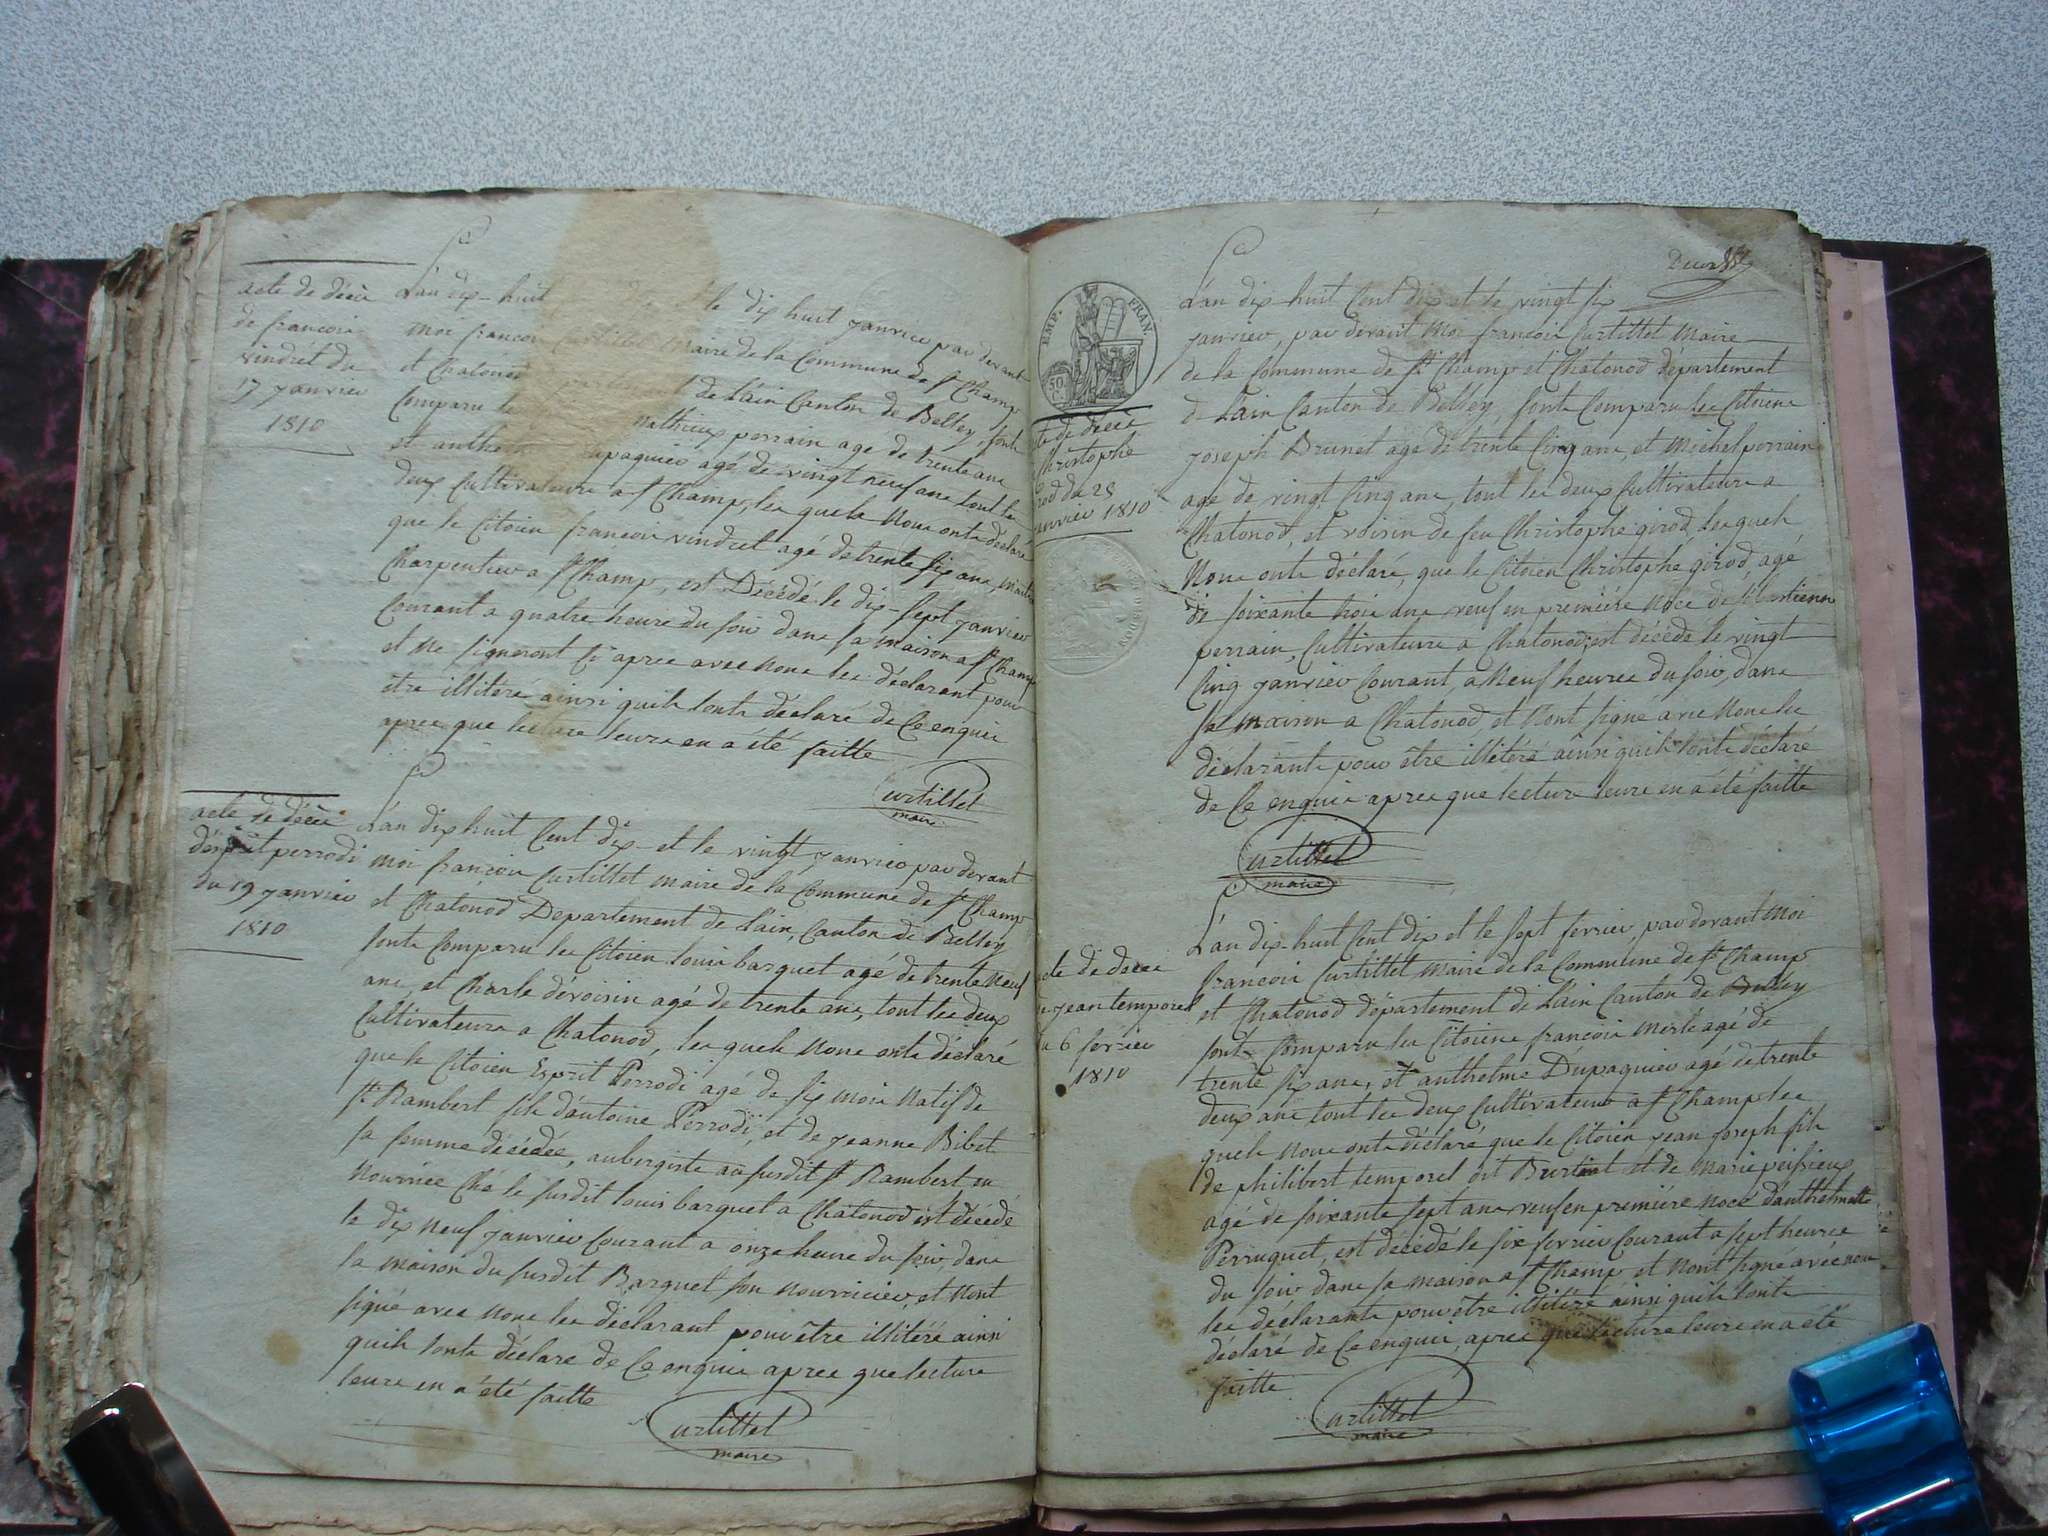 acte de décè
de francoi
vindrét du
17 janvier
1810
L'an dix-huit le dix huit janvier par devant
moi francoi Curtillet maire de la Commune de St Champ
et Chatonod de Lain Canton de Belley, sont
Comparu les mathieux perrain age de trente ans
et anthel dupaquier agé de vingt neuf ans tout les
deux Cultivateurs a St Champ, les quels nous onts déclaré
que le Citoien francoi vindret agé de trente six ans, maitre
Charpentier a St Champ, est Décédé le dix-sept janvier
Courant a quatre heure du soir dans sa maison a St Champ
et ne signeront Ci apres avec nous les déclarant pour
être illitéré ainsi quils lonts déclaré de Ce enquis
apres que lecture leurs en a été faitte
Curtillet
maire
acte de décès
désprit perrodi
du 19 janvier
1810
L'an dix huit Cent dix et le vingt janvier par devant
moi francoi Curtillet maire de la Commune de St Champ
et Chatonod Departement de Lain, Canton de Belley
sonts Comparu les Citoien louis barquet agé de trente neuf
ans, et Charle dévoisin agé de trente ans, tout les deux
Cultivateurs a Chatonod, les quels nous onts déclaré
que le Citoien Esprit Perrodi agé de six mois natif de
St Rambert fils d'antoine Perrodi, et de jeanne Bibet
sa femme décédée, aubergiste au susdit St Rambert en
nourrice Ché le susdit louis barquet a Chatonod est décédé
le dix neuf janvier Courant a onze heure du soir, dans
la maison du susdit Barquet son nourricier, et nont
signé avec nous les déclarant pour être illitéré ainsi
quils lonts déclare de Ce enquis apres que lecture
leurs en a été faitte
Curtillet
maire
EMP. FRAN.
50 C.
acte de décè
Christophe
girod du 25
janvier 1810
L'an dix huit Cent dix et le vingt six
janvier, par devant moi francoi Curtillet maire
de la Commune de St Champ et Chatonod departement
de Lain Canton de Belley, sonts Comparu les Citoiens
joseph Brunet agé de trente Cinq ans, et michel perrain
age de vingt Cinq ans, tout les deux Cultivateurs a
Chatonod, et voisin de feu Christophe girod, les quels
nous onts déclaré, que le Citoien Christophe girod, agé
de soixante trois ans veuf en première noce de sébastienne
perrain, Cultivateurs a Chatonod, est décédé le vingt
Cinq janvier Courant, a neuf heures du soir, dans
sa maison a Chatonod, et nont signé avec nous les
déclarants pour être illétéré ainsi quils lonts déclaré
de Ce enquis apres que lecture leurs en a été faitte
Curtillet
maire
acte de déces
de jean temporel
du 6 février
1810
L'an dix-huit Cent dix et le sept février par devant moi
francoi Curtillet maire de la Commune de St Champ
et Chatonod département de Lain Canton de Belley
sonts Comparu les Citoiens francoi merle agé de
trente six ans, et anthelme Dupaquier agé de trente
deux ans tout les deux Cultivateurs a St Champ les
quels nous onts déclaré que le Citoien jean joseph fils
de philibert temporel dit Burtinet et de Marie peissieux
agé de soixante sept ans veuf en première noce d'anthelmette
Perruquet, est décédé le six fevrier Courant a sept heures
du soir dans sa maison a St Champ et nont signé avec nous
les déclarants pour être illitéré ainsi quils lonts
déclaré de Ce enquis, apres que lecture leurs en a été
faitte
Curtillet
maire